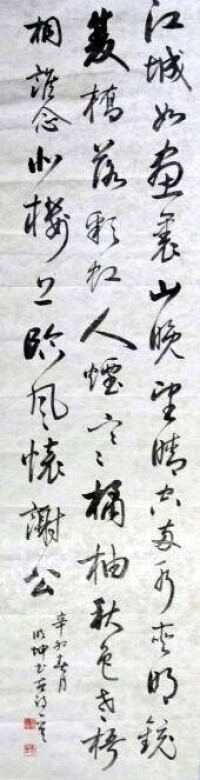 江城如畫裏山晚望晴空两水夾明鏡
雙橋落彩虹人煙寒橘柚秋色老梧
桐誰念北樓上臨風懷謝公
辛卯春月
坤书古诗